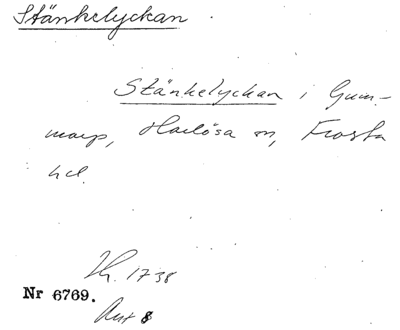 Stänkelyckan
Stänkelyckan i Gum-
marp, Harlösa sn, Frosta
hd.
Lh. 1738
Nr 6769.
Ant 8